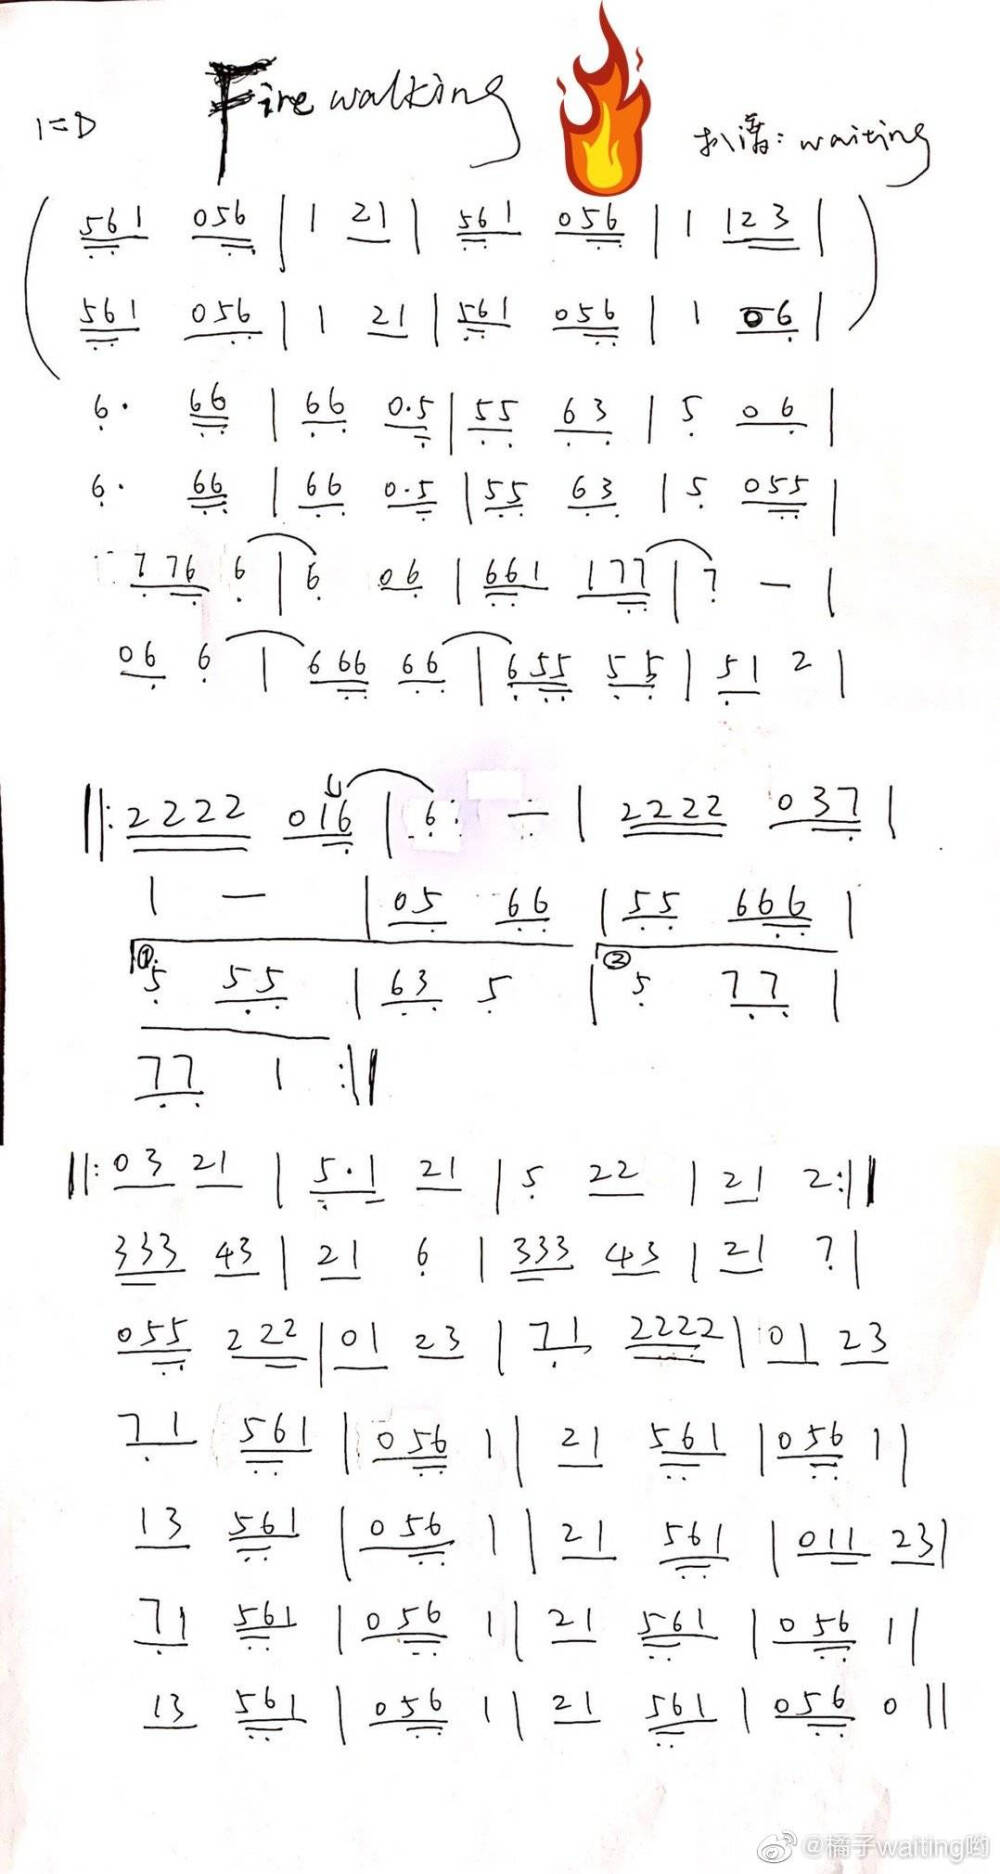 Fire walking
1=D
扒谱: waiting
( 561 056 | 1 21 | 561 056 | 1 123 |
561 056 | 1 21 | 561 056 | 1 06 | )
6· 66 | 66 0·5 | 55 63 | 5 06 |
6· 66 | 66 0·5 | 55 63 | 5 055 |
776 6 | 6 06 | 661 177 | 7 — |
06 6 | 666 66 | 655 55 | 51 2 |
||: 2222 016 | 6 — | 2222 037 |
1 — | 05 66 | 55 666 |
① 5 55 | 63 5 | ② 5 77 |
77 1 :||
||: 03 21 | 5·1 21 | 5 22 | 21 2 :||
333 43 | 21 6 | 333 43 | 21 7 |
055 222 | 01 23 | 71 2222 | 01 23
71 561 | 056 1 | 21 561 | 056 1 |
13 561 | 056 1 | 21 561 | 011 23 |
71 561 | 056 1 | 21 561 | 056 1 |
13 561 | 056 1 | 21 561 | 056 0 ||
@橘子waiting哟